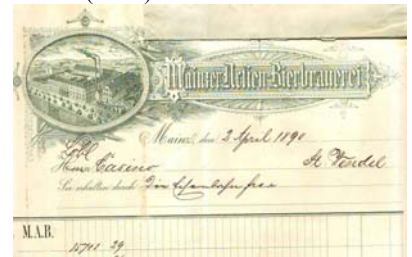 Mainzer Actien-Bierbrauerei
Mainz, den 2 April 1890
Löbl
Herrn Casino
St. Wendel
Sie erhalten durch die Eisenbahn frco
M.A.B.
29